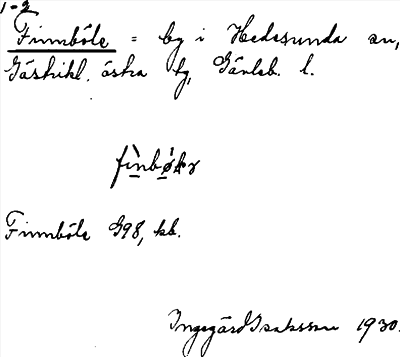 1-2
Finnböle = by i Hedesunda sn,
Gästrikl. östra tg, Gävleb. l.
Finnböle 998, kb.
Ingegärd Isaksson 1930.